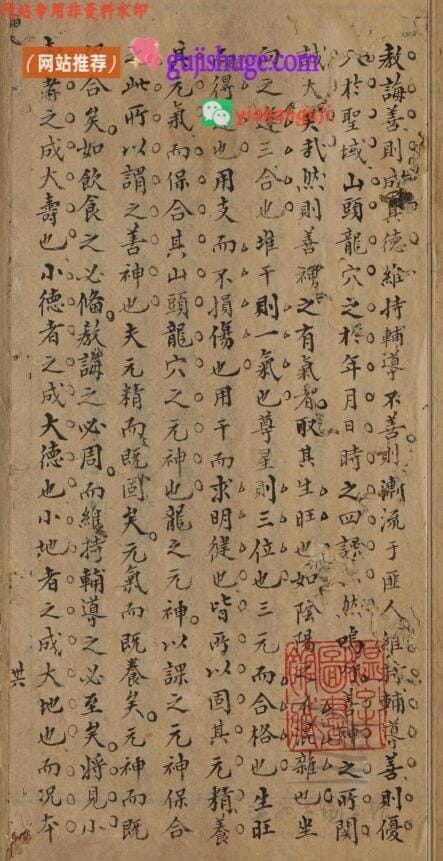 网站专用非资料水印
（网站推荐）
gujishuge.com
敎誨善則成其德維持輔導不善則漸流于匪人維持輔導善則優
於聖域山頭龍穴之於年月日時之四課然嗚善神之所関
誠大矣㢤然則善神之有氣者取其生旺也如陰陽不混雜也坐
向之逢三合也堆干則一氣也尊星則三位也三元而合格也生旺
而得也用支而不損傷也用干而求明健也皆所以固其元精養
其元氣而保合其山頭龍穴之元神也龍之元神以課之元神保合
此所以謂之善神也夫元精而既固矣元氣而既養矣元神而既
合矣如飲食之必俻敎誨之必周而維持輔導之必至矣將見小
壽之成大壽也小德者之成大德也小地者之成大地也而況本